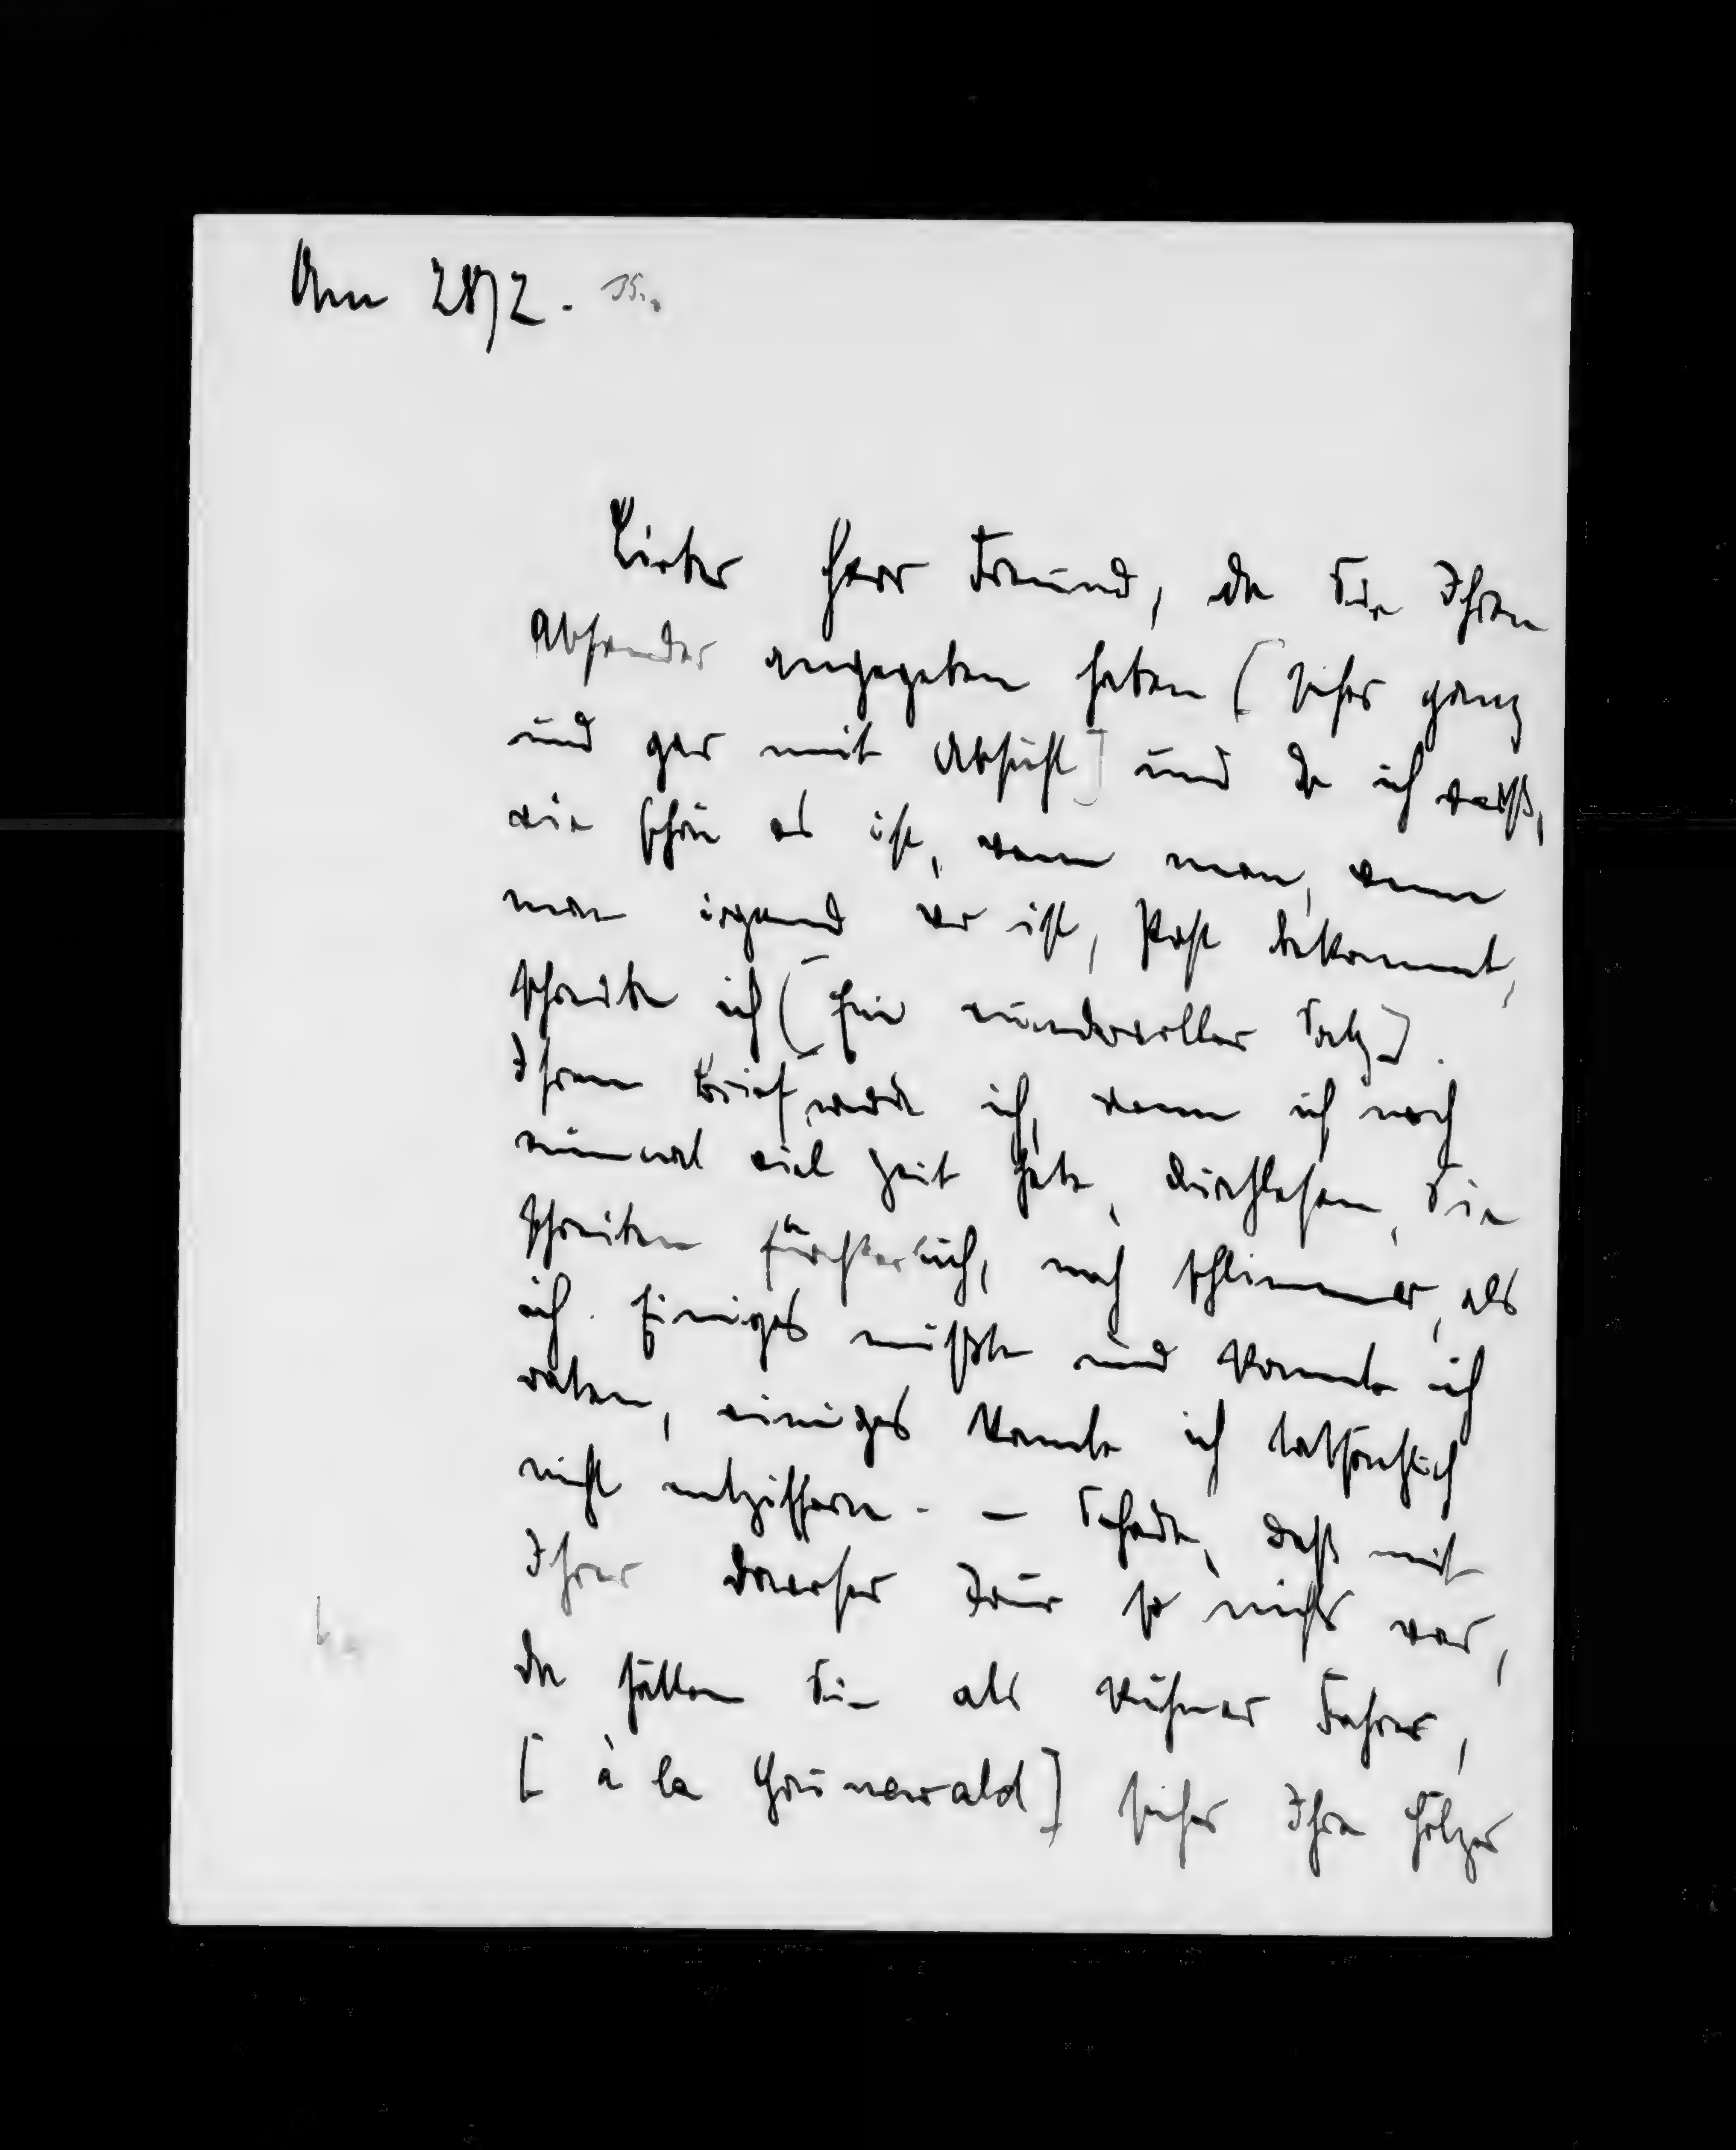 Am 28/2. 35.
Lieber Herr Freund, da Sie Ihren
Absender angegeben haben (sicher ganz
und gar mit Absicht] und da ich weiß,
wie schön es ist, wenn man, wenn
man irgend wo ist, Post bekommt,
schreibe ich (Ein wundervoller Satz).
Ihren Brief werde ich, wenn ich noch
einmal viel Zeit habe, durchlesen, Sie
schreiben fürchterlich, noch schlimmer, als
ich. Einiges mußte und konnte ich
raten, einiges konnte ich tatsächlich
nicht entziffern. – Schade, daß mit
Ihrer Davoser Tour so nichts war,
da hätten Sie als kühner Fahrer,
[ à la Grünewald] sicher Ihre Hölzer